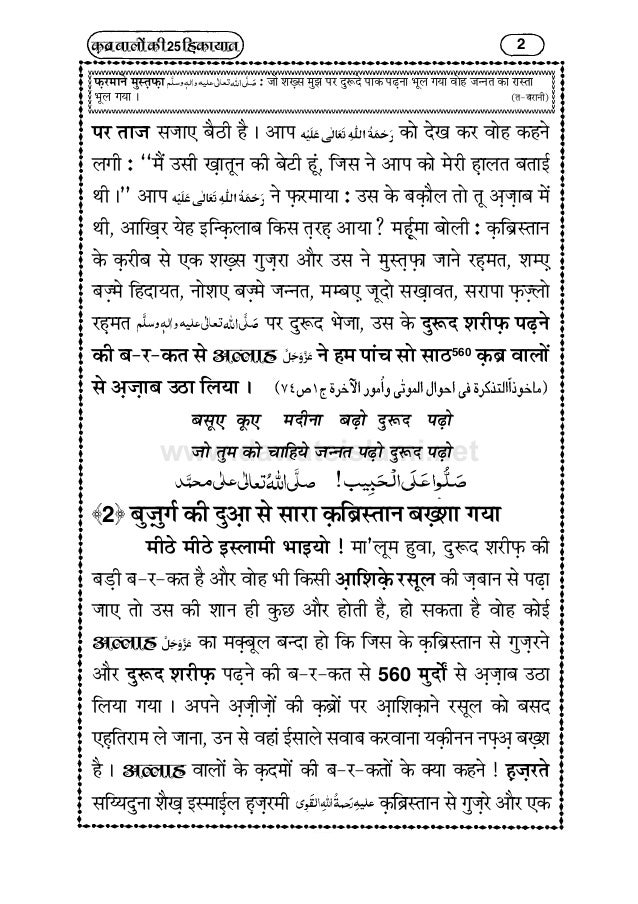 क़ब्र वालों की 25 हिकायात
2
फ़रमाने मुस्त़फ़ा صَلَّى اللهُ تَعَالٰى عَلَيْهِ وَاٰلِهٖ وَسَلَّم : जो शख़्स मुझ पर दुरूदे पाक पढ़ना भूल गया वोह जन्नत का रास्ता
भूल गया । (त़-बरानी)
पर ताज सजाए बैठी है । आप رَحْمَةُ اللهِ تَعَالٰى عَلَيْه को देख कर वोह कहने
लगी : ‘‘मैं उसी ख़ातून की बेटी हूं, जिस ने आप को मेरी हालत बताई
थी ।’’ आप رَحْمَةُ اللهِ تَعَالٰى عَلَيْه ने फ़रमाया : उस के बक़ौल तो तू अ़ज़ाब में
थी, आख़िर येह इन्क़िलाब किस त़रह़ आया ? मर्ह़ूमा बोली : क़ब्रिस्तान
के क़रीब से एक शख़्स गुज़रा और उस ने मुस्त़फ़ा जाने रह़मत, शम्ए़
बज़्मे हिदायत, नोशए बज़्मे जन्नत, मम्बए़ जूदो सख़ावत, सरापा फ़ज़्लो
रह़मत صَلَّى اللهُ تَعَالٰى عَلَيْهِ وَاٰلِهٖ وَسَلَّم पर दुरूद भेजा, उस के दुरूद शरीफ़ पढ़ने
की ब-र-कत से अल्लाह عَزَّوَجَلَّ ने हम पांच सो साठ560 क़ब्र वालों
से अ़ज़ाब उठा लिया । (ماخوذاًالتذكرة فى احوال الموتٰى وأمور الآخرة ج١ص٧٤)
बसूए कूए मदीना बढ़ो दुरूद पढ़ो
www.dawateislami.net
जो तुम को चाहिये जन्नत पढ़ो दुरूद पढ़ो
صَلُّوا عَلَى الْحَبِيب! صلَّى اللهُ تعالٰى علٰى محمَّد
﴾2﴿ बुज़ुर्ग की दुआ़ से सारा क़ब्रिस्तान बख़्शा गया
मीठे मीठे इस्लामी भाइयो ! मा'लूम हुवा, दुरूद शरीफ़ की
बड़ी ब-र-कत है और वोह भी किसी आ़शिक़े रसूल की ज़बान से पढ़ा
जाए तो उस की शान ही कुछ और होती है, हो सकता है वोह कोई
अल्लाह عَزَّوَجَلَّ का मक़्बूल बन्दा हो कि जिस के क़ब्रिस्तान से गुज़रने
और दुरूद शरीफ़ पढ़ने की ब-र-कत से 560 मुर्दों से अ़ज़ाब उठा
लिया गया । अपने अ़ज़ीज़ों की क़ब्रों पर आ़शिक़ाने रसूल को बसद
एह़तिराम ले जाना, उन से वहां ईसाले सवाब करवाना यक़ीनन नफ़्अ़ बख़्श
है । अल्लाह वालों के क़दमों की ब-र-कतों के क्या कहने ! ह़ज़रते
सय्यिदुना शैख़ इस्माई़ल ह़ज़रमी عليه رَحمةُ اللهِ القَوى क़ब्रिस्तान से गुज़रे और एक